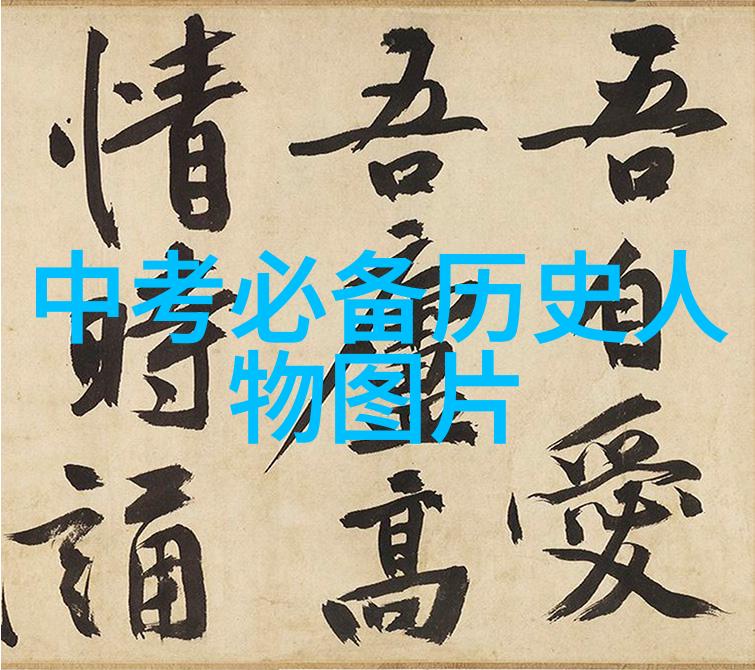 吾自愛
吾廬高
情時誦
中考必备历史人
物图片